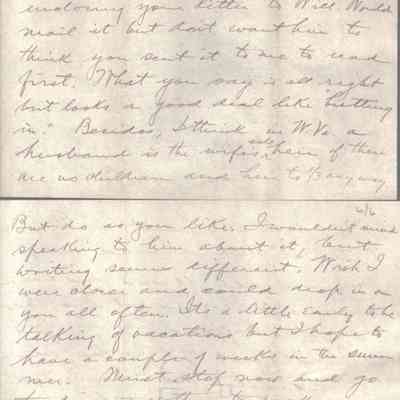 enclosing your letter to Will. Would
mail it but don't want him to
think you sent it to me to read
first. What you say is all right
but looks a good deal like "butting
in." Besides, I think in W.Va. a
husband is the wife's sole heir if there
are no children and heir to
6/6
But do as you like. I wouldn't mind
speaking to him about it, but
writing seems different. Wish I
were closer and could drop in on
you all often. Its a little early to be
talking of vacations but I hope to
have a couple of weeks in the sum
mer. Must stop now and go